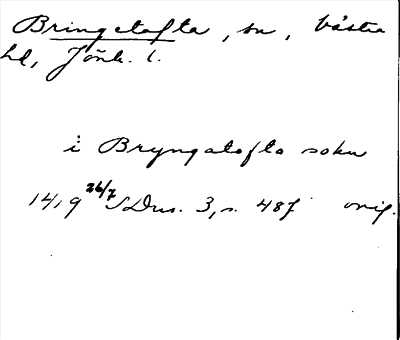 Bringetofta, sn, Västra
hd, Jönk. l.
i Bryngatofta sokn
1419 26/7 SDns. 3, s. 487 orig.